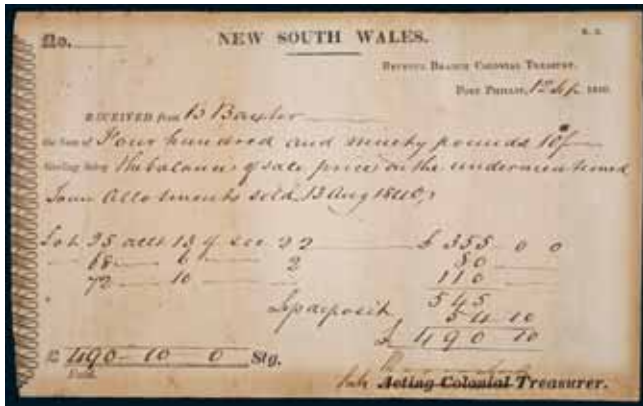 No.
NEW SOUTH WALES.
REVENUE BRANCH COLONIAL TREASURY.
PORT PHILLIP, 1st Sep. 1840.
RECEIVED from B Baxter
the Sum of Four hundred and ninety pounds 10/-
Sterling being the balance of sale price on the undermentioned
Town Allotments sold 13 Aug 1840,
Lot 35 allt 13 of sec 22 £ 355 0 0
68 6 2 80
72 10 110
545
deposit 54 10
£ 490 10
£ 490 10 0 Stg.
Acting Colonial Treasurer.